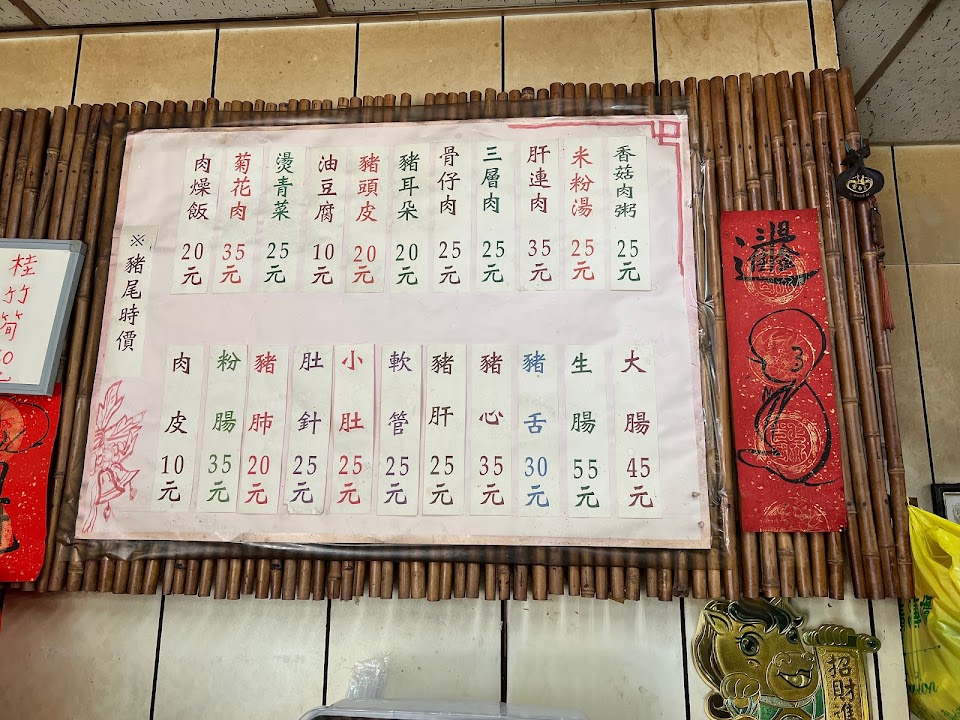 香菇肉粥 25元
米粉湯 25元
肝連肉 35元
三層肉 25元
骨仔肉 25元
豬耳朵 20元
豬頭皮 20元
油豆腐 10元
燙青菜 25元
菊花肉 35元
肉燥飯 20元
※豬尾時價
大腸 45元
生腸 55元
豬舌 30元
豬心 35元
豬肝 25元
軟管 25元
小肚 25元
肚針 25元
豬肺 20元
粉腸 35元
肉皮 10元
桂竹筍
招財進